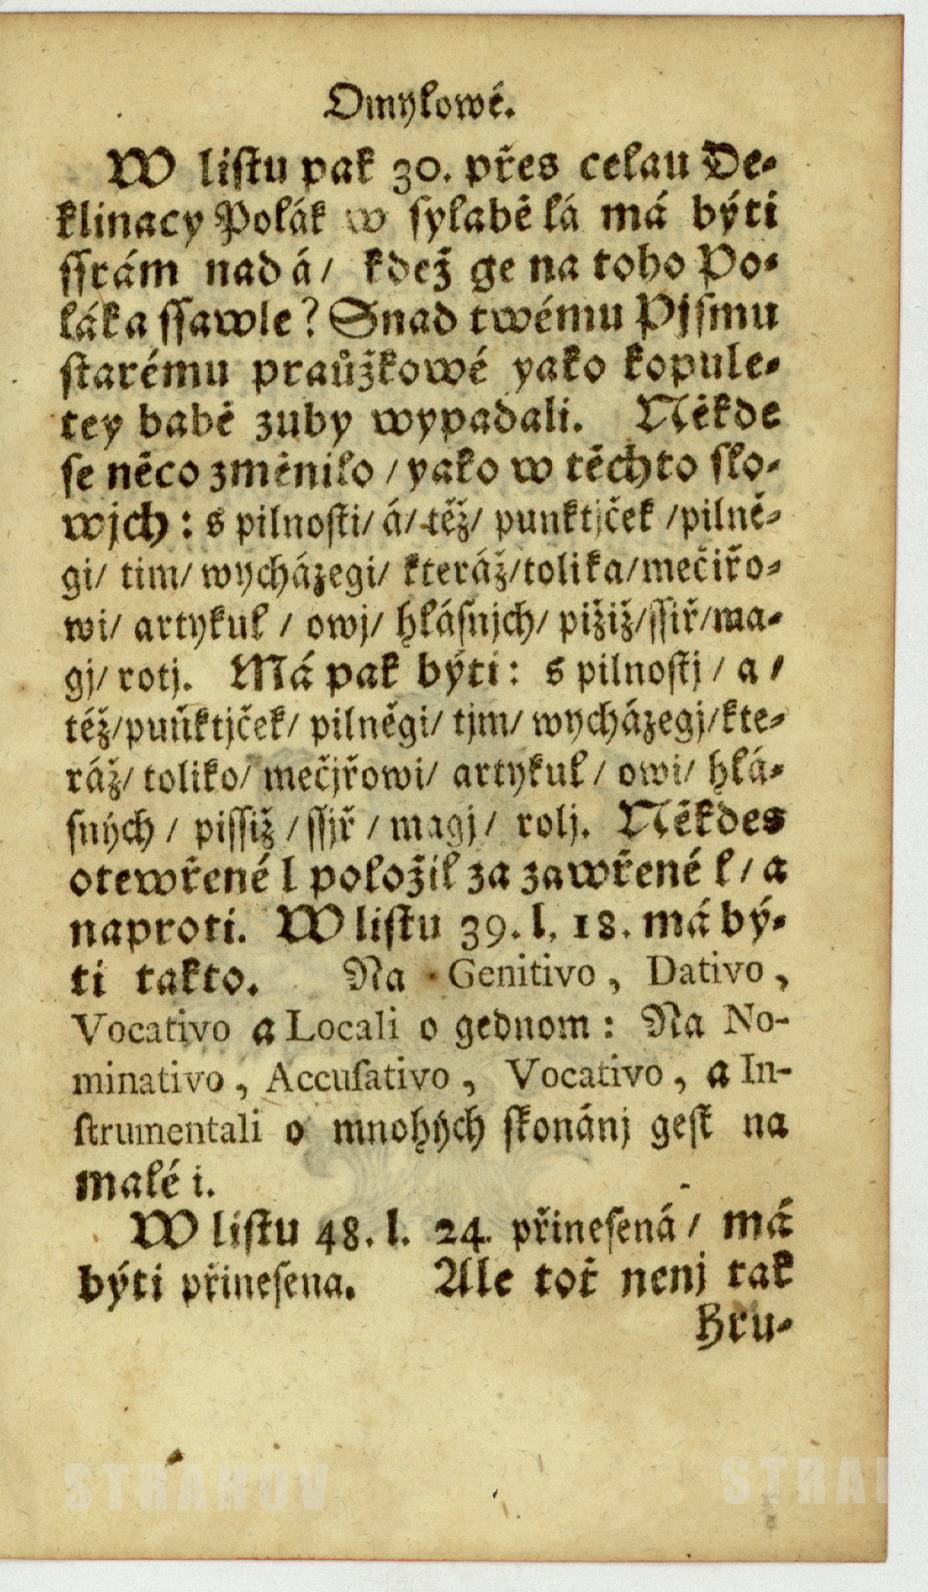 Omylowé.
W liſtu pak 30. přes celau De-
klinacy Polák w ſylabě lá má býti
ſſrám nad á / kdež ge na toho Po-
láka ſſawle? Snad twému Pjſmu
ſtarému praůžkowé yako kopule-
tey babě zuby wypadali. Někde
ſe něco změnilo / yako w těchto ſlo-
wjch: s pilnoſti / á / též / punktjček / pilně-
gi / tim / wycházegi / kteráž / tolika / mečiřo-
wi / artykul / owj / hláſnjch / pižiž / ſſiř / ma-
gj / rotj. Má pak býti: s pilnoſtj / a /
též / puňktjček / pilněgi / tjm / wycházegj / kte-
ráž / toliko / mečjřowi / artykul / owi / hlá-
ſných / piſſiž / ſſjř / magj / rolj. Někdes
otewřené l položil za zawřené ł / a
naproti. W liſtu 39. l. 18. má bý-
ti takto. Na Genitivo, Dativo,
Vocativo a Locali o gednom: Na No-
minativo, Accuſativo, Vocativo, a In-
ſtrumentali o mnohých ſkonánj geſt na
malé i.
W liſtu 48. l. 24. přineſená / má
býti přineſena. Ale toť nenj tak
Hru-
STRAHOV
STRAH